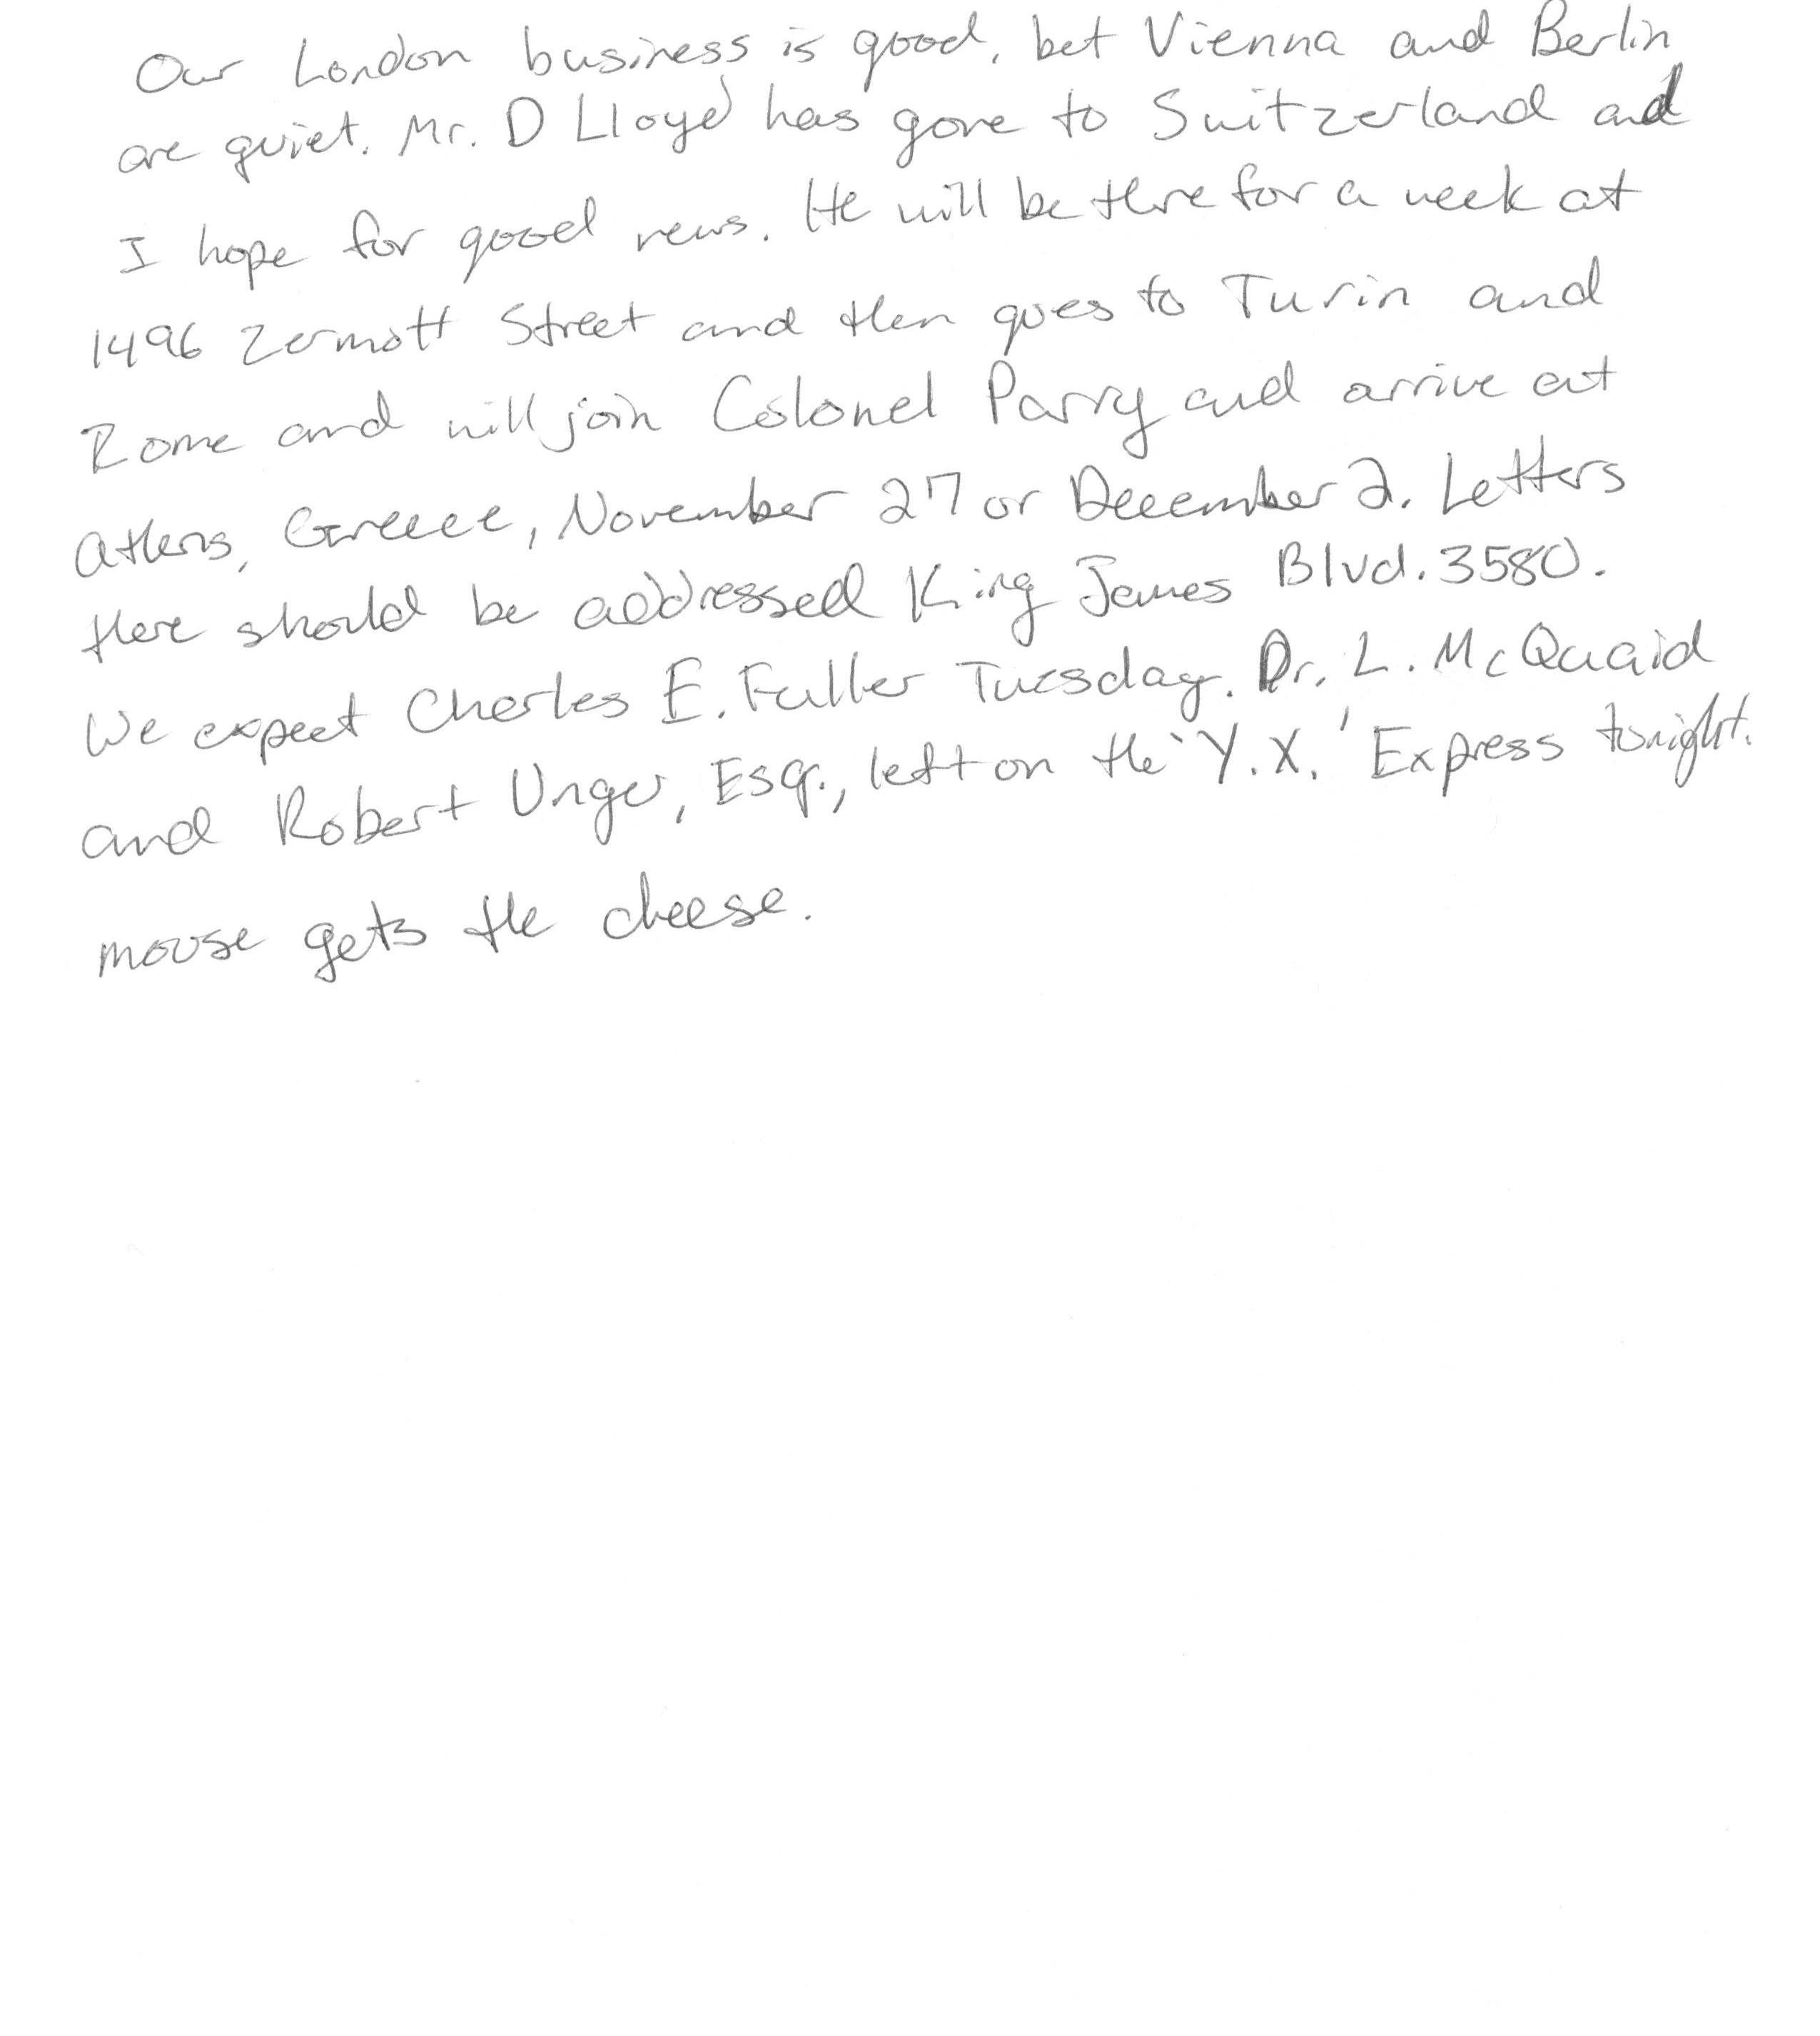 Our London business is good, bet Vienna and Berlin
are quiet. Mr. D Lloyd has gone to Switzerland and
I hope for good news. He will be there for a week at
1496 Zermott Street and then goes to Turin and
Rome and will join Colonel Parry and arrive at
Athens, Greece, November 27 or December 2. Letters
there should be addressed King James Blvd. 3580.
We expect Charles E. Fuller Tuesday. Dr. L. McQuaid
and Robert Unger, Esq., left on the 'Y.X.' Express tonight.
mouse gets the cheese.